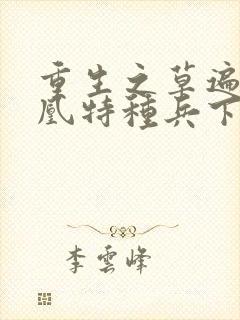 重生之草遍
凰特種兵下
李雲峰